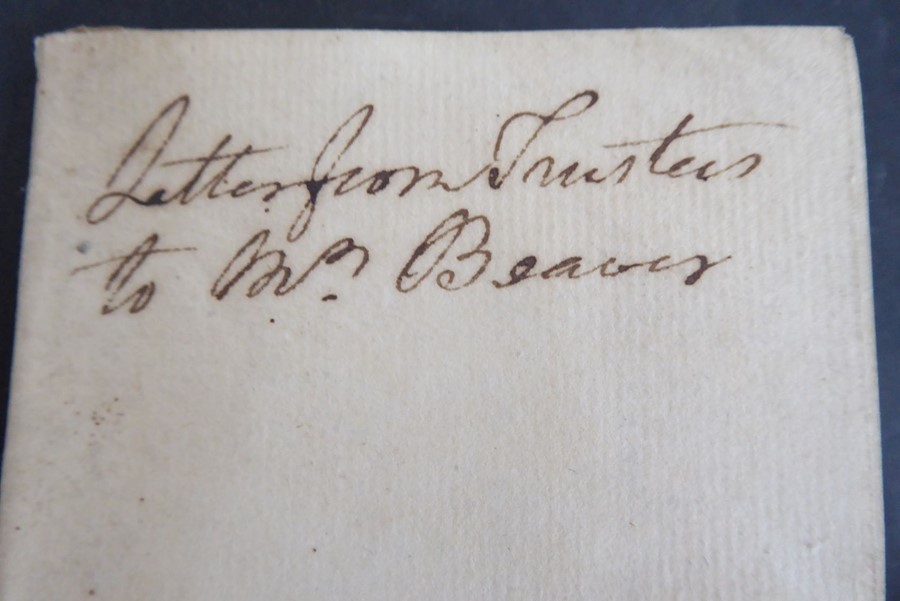 Letter from Trustees
to Mr. Beaver